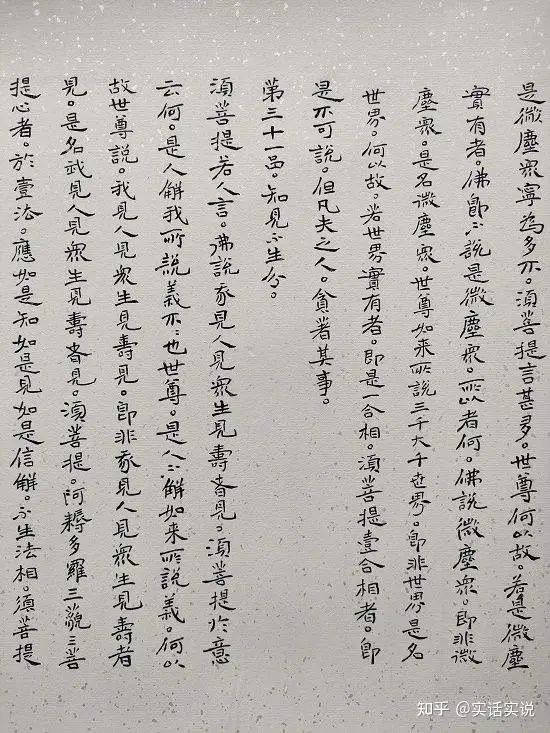 是微塵衆寧為多不。須菩提言甚多。世尊何以故。若是微塵
實有者。佛即不說是微塵衆。所以者何。佛說微塵衆。即非微
塵衆。是名微塵衆。世尊如来所說三千大千世界。即非世界是名
世界。何以故。若世界實有者。即是一合相。須菩提壹合相者。即
是不可說。但凡夫之人。貪著其事。
第三十一品。知見不生分。
須菩提若人言。佛說我見人見衆生見壽者見。須菩提於意
云何。是人解我所說義不。不也世尊。是人不解如来所說義。何以
故世尊說。我見人見衆生見壽見。即非我見人見衆生見壽者
見。是名我見人見衆生見壽者見。須菩提。阿耨多羅三藐三菩
提心者。於壹法。應如是知如是見如是信解。不生法相。須菩提
知乎 @实话实说